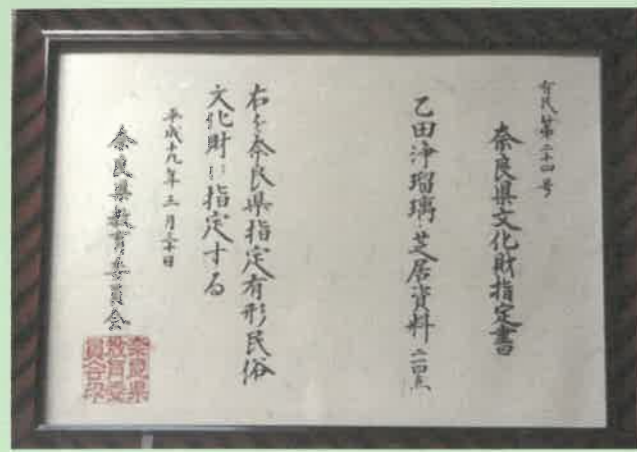 有民第二十四号
奈良県文化財指定書
乙田浄瑠璃・芝居資料
右を奈良県指定有形民俗
文化財に指定する
平成十九年三月三十日
奈良県教育委員会
奈良県
教育委
員会印